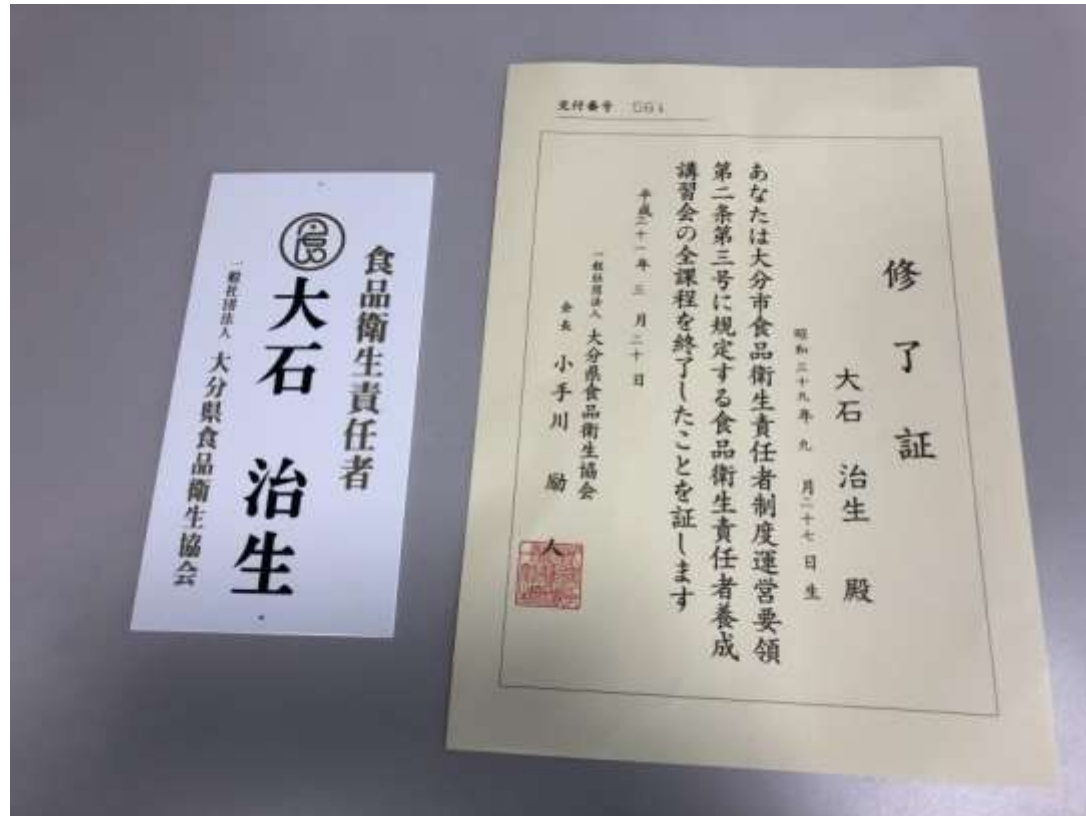 食品衛生責任者
大石 治生
一般社団法人 大分県食品衛生協会
交付番号 564
修了証
大石 治生 殿
昭和三十九年 九 月二十七日生
あなたは大分市食品衛生責任者制度運営要領
第二条第三号に規定する食品衛生責任者養成
講習会の全課程を終了したことを証します
平成三十一年 三 月二十日
一般社団法人 大分県食品衛生協会
会長 小手川 励 人